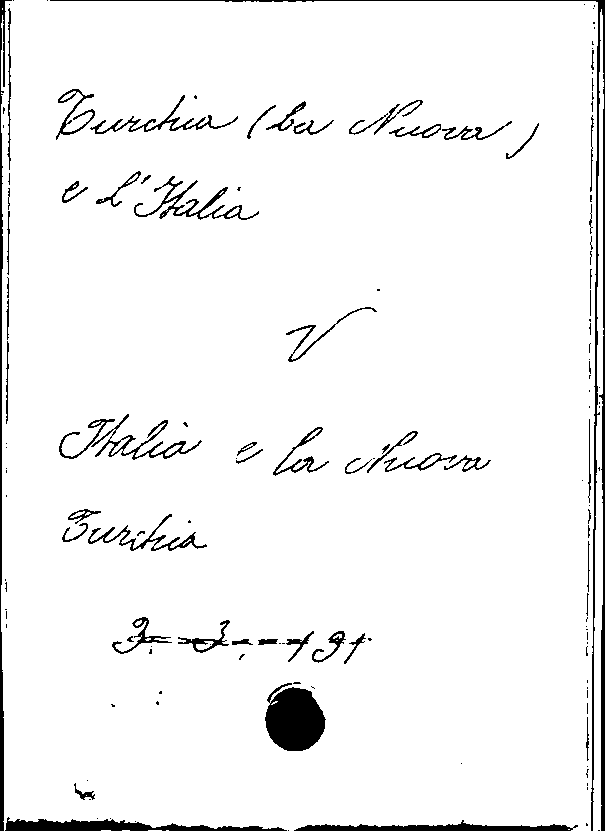 Turchia (La Nuova)
e L'Italia
V
Italia e la Nuova
Turchia
3. = 3. - - 131